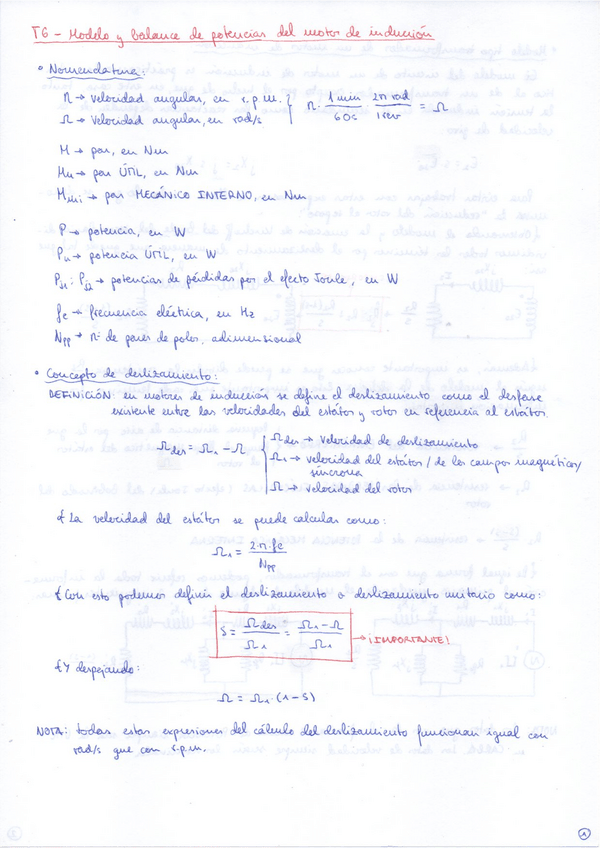 T6 - Modelo y balance de potencias del motor de inducción
• Nomenclatura:
n → velocidad angular, en r.p.m.
Ω → velocidad angular, en rad/s
n · 1 min / 60 s · 2π rad / 1 rev = Ω
M → par, en Nm
Mu → par ÚTIL, en Nm
Mmi → par MECÁNICO INTERNO, en Nm
P → potencia, en W
Pu → potencia ÚTIL, en W
PJ1 : PJ2 → potencias de pérdidas por el efecto Joule, en W
fe → frecuencia eléctrica, en Hz
Npp → nº de pares de polos, adimensional
• Concepto de deslizamiento:
DEFINICIÓN: en motores de inducción se define el deslizamiento como el desfase
existente entre las velocidades del estátor y rotor en referencia al estátor.
Ωdes = Ω1 - Ω
Ωdes → velocidad de deslizamiento
Ω1 → velocidad del estátor / de los campos magnéticos /
síncrona
Ω → velocidad del rotor
La velocidad del estátor se puede calcular como:
Ω1 = 2·π·fe / Npp
Con esto podemos definir el deslizamiento o deslizamiento unitario como:
S = Ωdes / Ω1 = Ω1 - Ω / Ω1 → ¡IMPORTANTE!
Y despejando:
Ω = Ω1 · (1 - S)
NOTA: todas estas expresiones del cálculo del deslizamiento funcionan igual con
rad/s que con r.p.m.
1